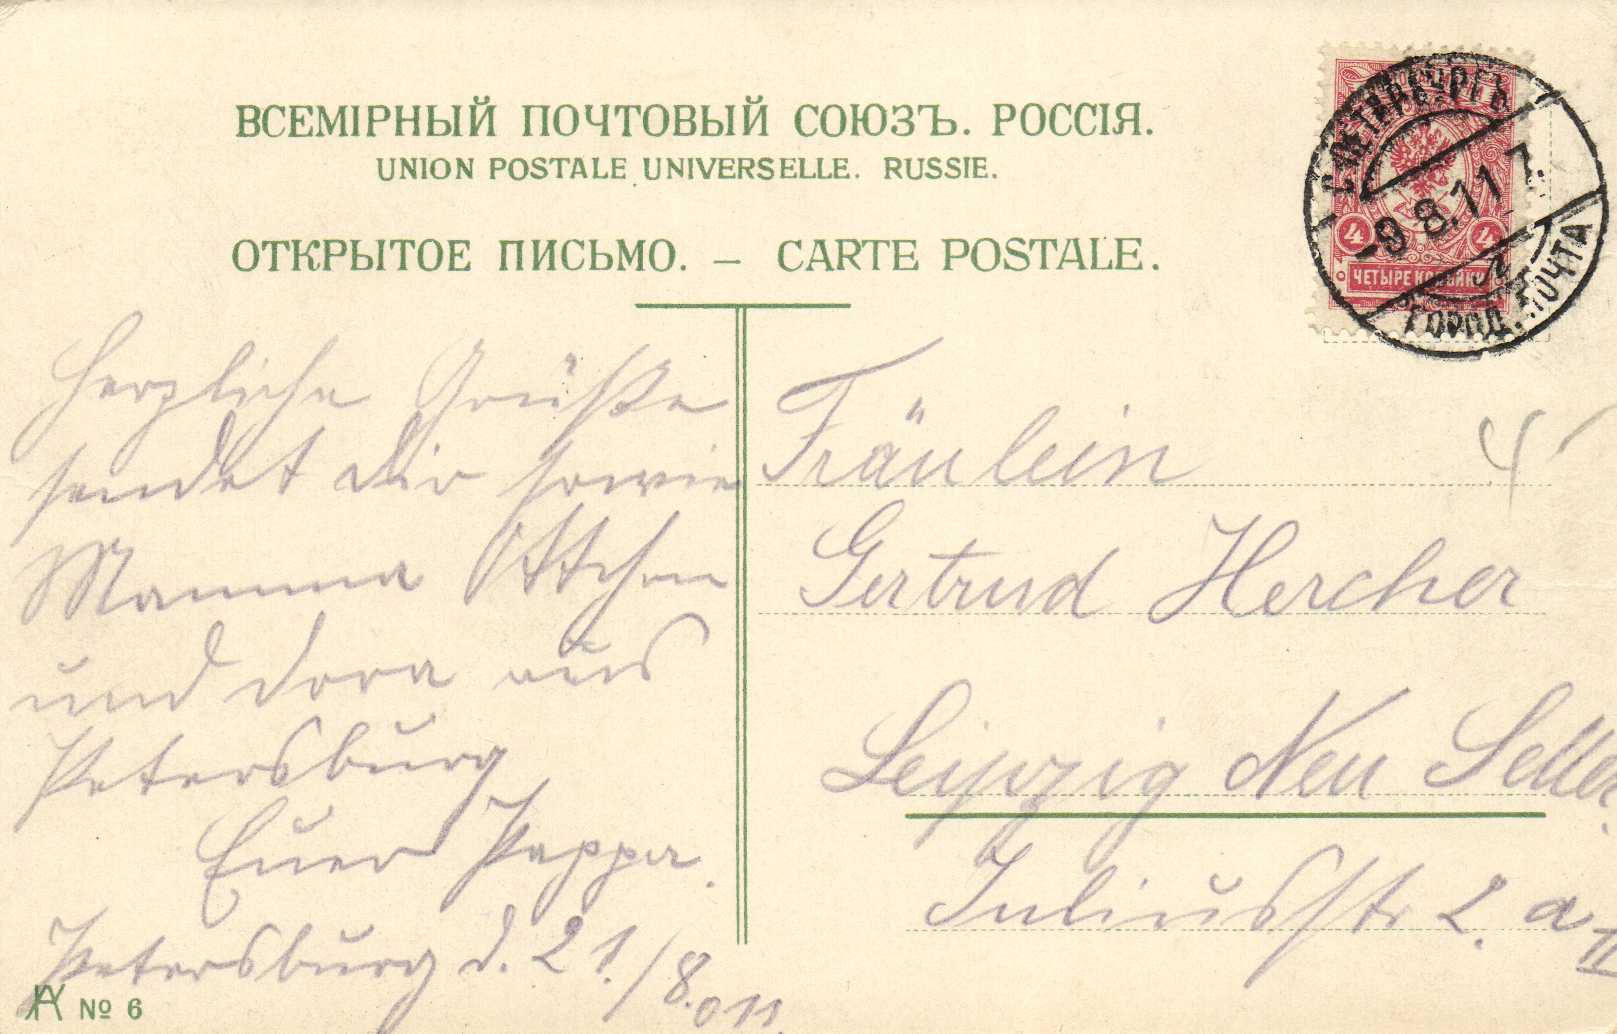 ВСЕМІРНЫЙ ПОЧТОВЫЙ СОЮЗЪ. РОССІЯ.
UNION POSTALE UNIVERSELLE. RUSSIE.
ОТКРЫТОЕ ПИСЬМО. – CARTE POSTALE.
С.ПЕТЕРБУРГЪ
-8 8.11 7.
ГОРОД. ПОЧТА
4 4
ЧЕТЫРЕ КОПѢЙКИ
Herzliche Grüße
sendet Dir sowie
Mamma Ottchen
und Dora aus
Petersburg
Euer Pappa.
Petersburg d. 21./8. 011
Fräulein
Gertrud Hercher
Leipzig Neu Seller
Juliusstr 2. a II
№ 6